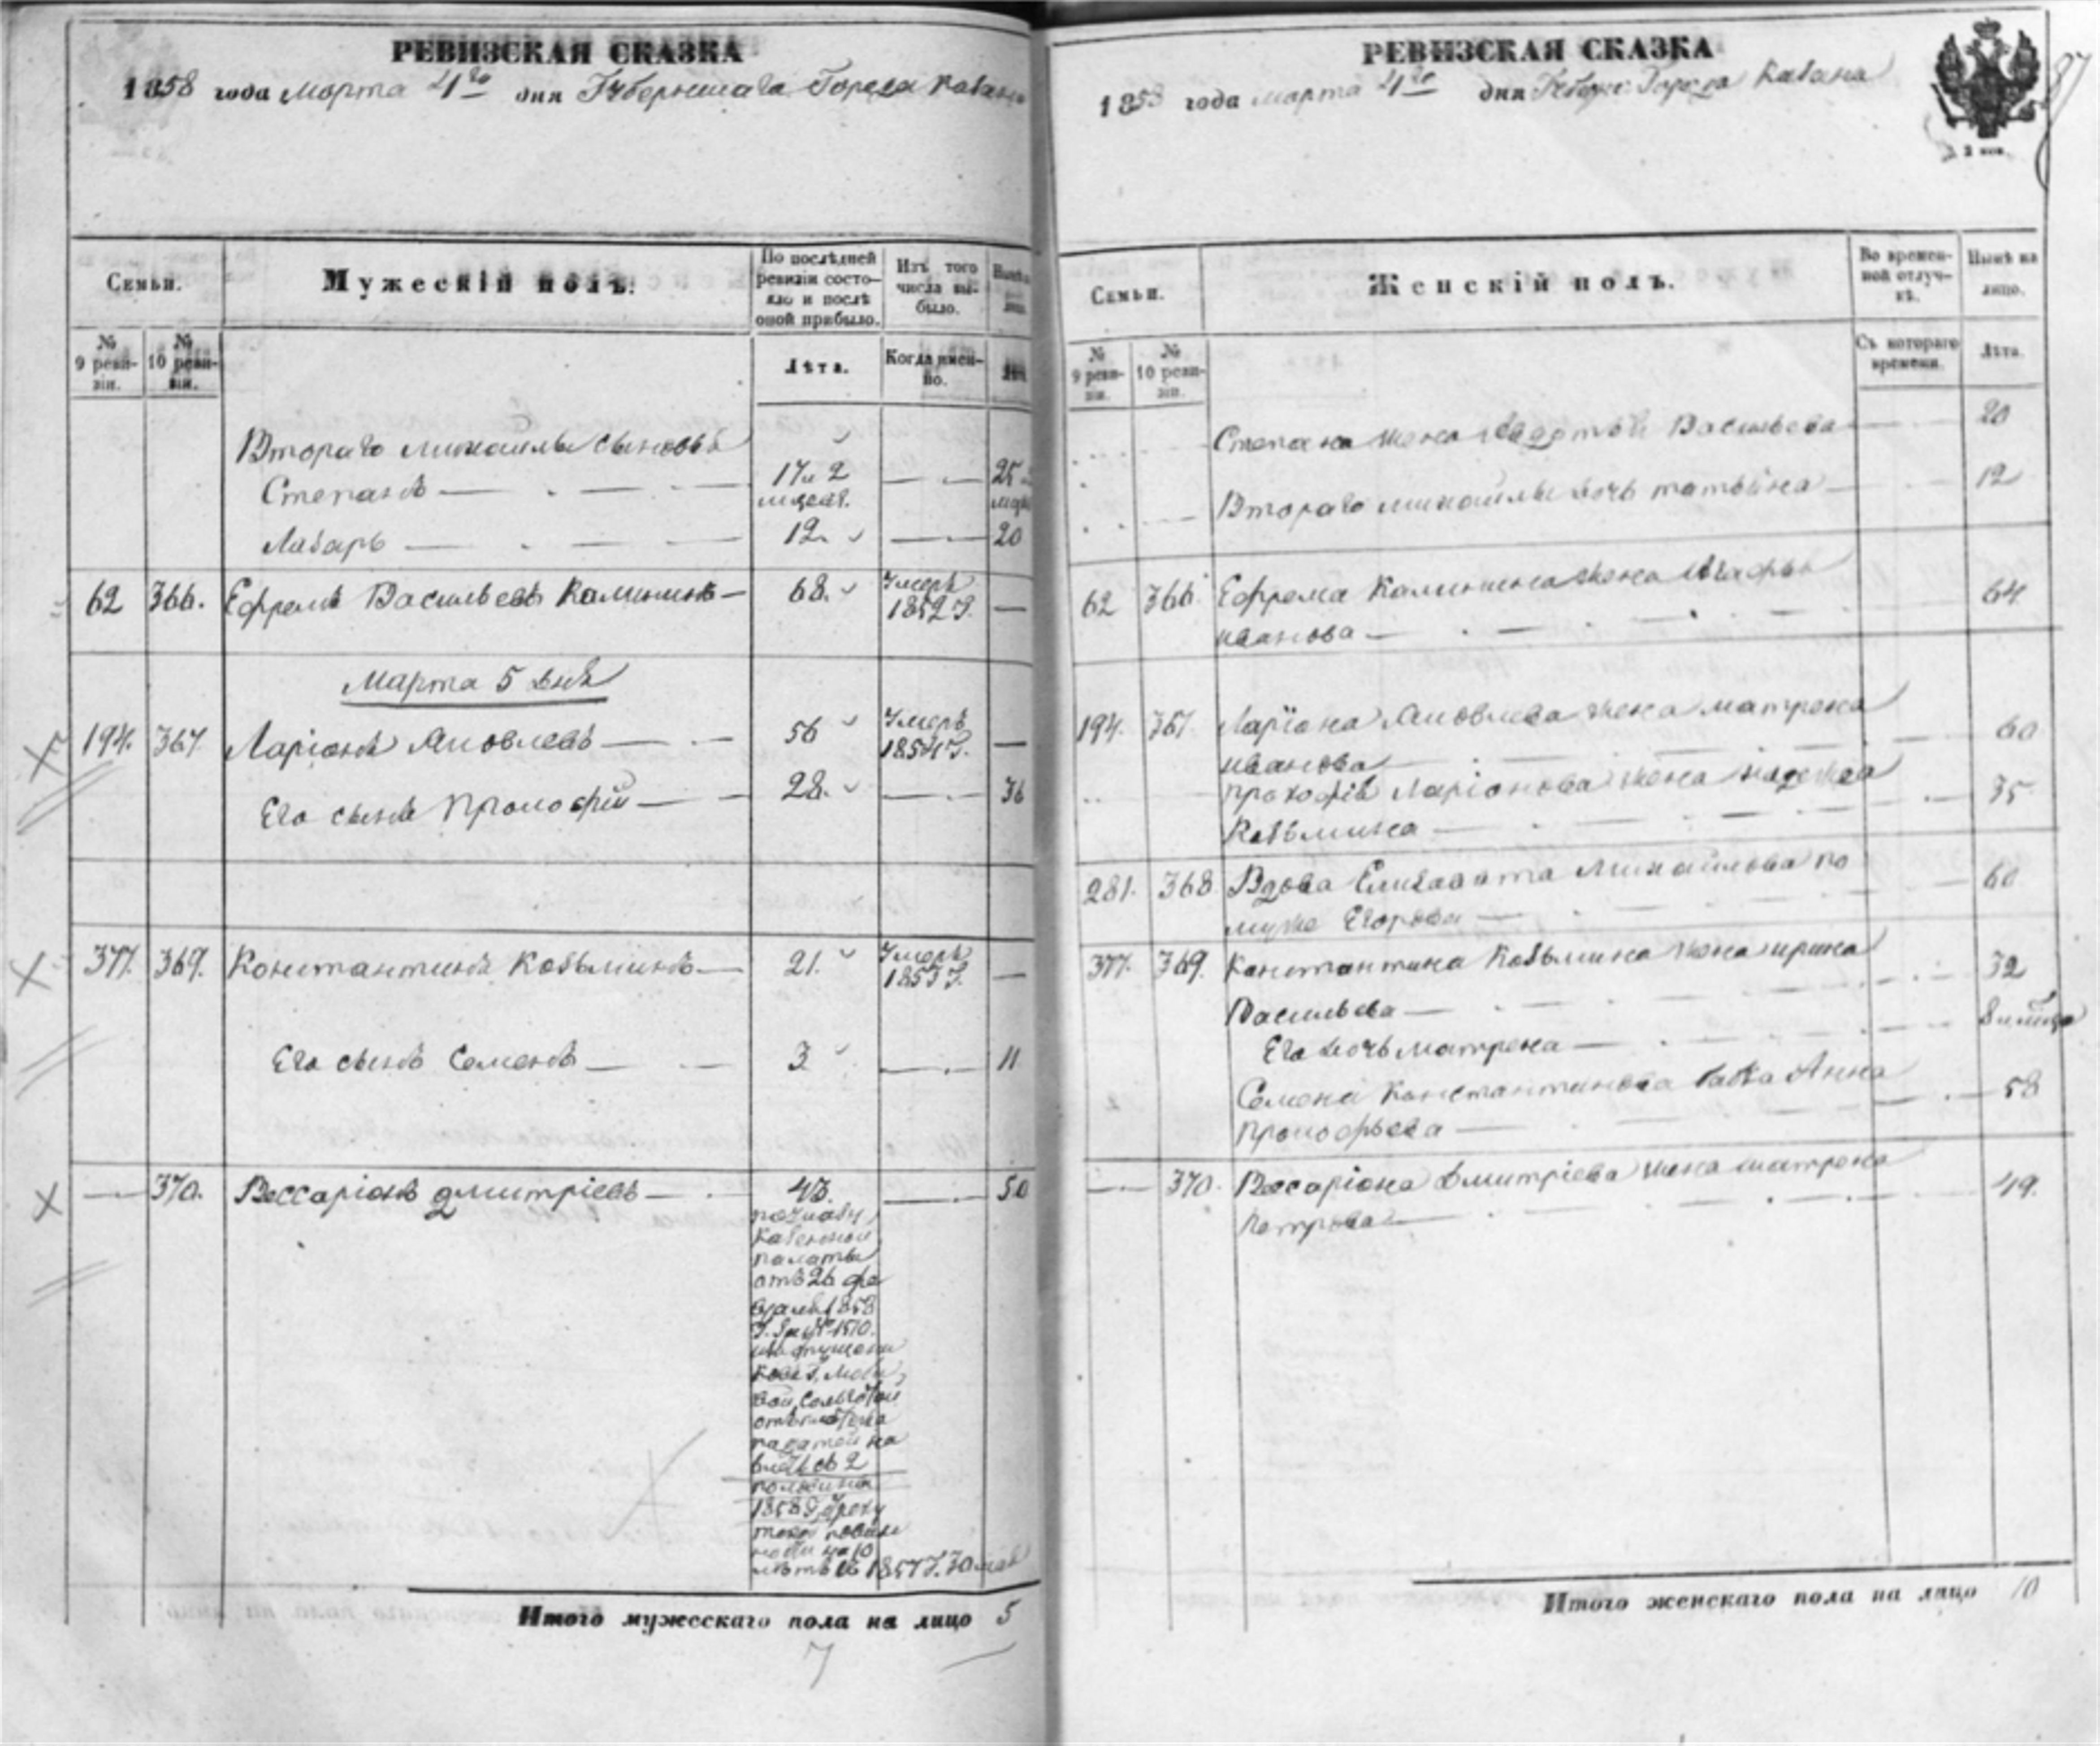 РЕВИЗСКАЯ СКАЗКА
1858 года Марта 4го дня Губернскаго Города Казани
Семьи.
Мужескій полъ.
По послѣдней ревизіи состояло и послѣ оной прибыло.
Изъ того числа выбыло.
№ 9 ревизіи.
№ 10 ревизіи.
Лѣта.
Когда именно.
Втораго Михаилы сыновья
Степанъ 17 и 2 месяц. 25
Лазарь 12. 20
62 366. Ефремъ Васильевъ Калининъ 68. Умеръ 1852 Г.
Марта 5 дня
194. 367 Ларіонъ Яковлевъ 56 Умеръ 1854 Г.
Его сынъ Прокофій 28. 36
377. 369. Константинъ Козьминъ 21. Умеръ 1857 Г.
Его сынъ Семенъ 3 11
370. Вессаріонъ Дмитріевъ 43. 50
по указу
Казенной
палаты
отъ 26 фе
враля 1858
Г. за № 1510.
Итого мужескаго пола на лицо 5
7
РЕВИЗСКАЯ СКАЗКА
1858 года Марта 4го дня Губерн. Города Казани
2 коп.
87
Семьи.
Женскій полъ.
Во временной отлучкѣ.
Нынѣ на лицо.
№ 9 ревизіи.
№ 10 ревизіи.
Съ котораго времени.
Лѣта.
Степана жена Васильева 20
Втораго Михаилы дочь Татьяна 12
62 366. Ефрема Калинина жена
Иванова 64
194. 367. Ларіона Яковлева жена Матрена
Иванова 60
Прокофія Ларіонова жена Надежда
Козьмина 35
281. 368 Вдова Елизавета Михайлова по
мужѣ Егорова 60
377. 369. Константина Козьмина жена Ирина
Васильева 32
Его дочь Матрена
Семена Константинова бабка Анна
Прокофьева 58
370. Вессаріона Дмитріева жена Матрена
Петрова 49.
Итого женскаго пола на лицо 10